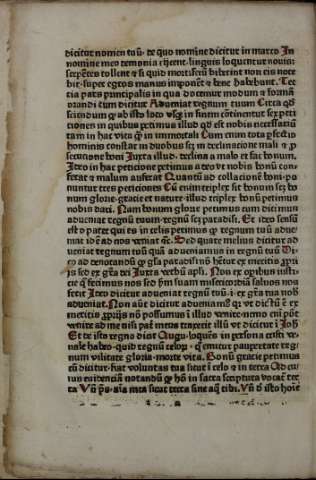 dicitur nomen tuū· de quo nomine dicitur in marco In
nomine meo demonia eijcient· linguis loquentur nouis:
serpētes tollent ⁊ si quid mortiferū biberint· non eis noce
bit· super egros manus imponēt ⁊ bene habebunt. Ter
tia pars principalis in qua docemur modum ⁊ formā
orandi cum dicitur Adueniat regnum tuum Circa qđ
sciendum ꝙ ab isto loco vsqꝫ in finem cōtinentur sex peti
tiones in quibus petimus illud qđ est nobis necessariū
tam in hac vita qͣ in immortali Cum enim tota pfectio
hominis consistat in duobus sꝫ in declinatione mali ⁊ p
secutione boni Iuxta illud· declina a malo et fac bonum.
Ideo in hac peticione petimus a deo vt nobis bonū con
ferat ⁊ malum auferat Quantū ad collacionē boni· po
nuntur tres peticiones Cū enim triplex sit bonum sꝫ bo
num glorie· gracie et nature· illud triplex bonū petimus
nobis dari. Nam bonum glorie petimus cum dicimus
adueniat regnū tuum· regnū sꝫ paradisi. Et ideo sensus
est o pater qui es in celis petimus ꝙ regnum tuū adue
niat id ē ad nos veniat ⁊c̄. Sed quare melius dicitur ad
ueniat regnum tuū quā adueniamus in regnū tuū Di
co ad denotandū ꝙ gͣla paradisi nō hētur ex meritis ꝓprij
is sed ex gͣcia dei Iuxta verbū apli. Non ex operibus iusti
cie q̄ fecimus nos sed ꝑm suam misericordiā saluos nos
fecit Ideo dicitur adueniat regnū tuū· i· ex gͣcia tua nob
adueniat. Non aūt dicitur adueniam qꝛ vt dictū ē ex
meritis ꝓprijs nō possumus ī illud venire· nemo enī pōt
venire ad me nisi pater meus traxerit illū vt dicitur ī Ioh
Et de isto regno dicit Augu· loquēs in persona cristi ve
nale habeo· quid regnū celoꝝ· q̄ emitur paupertate reg
num vilitate gloria· morte vita. Bonū gracie petimus
cū dicitur· fiat voluntas tua sicut ī celo ⁊ in terra Ad cu
ius euidenciā notandū ꝙ hō in sacra scriptura vocat ter
ra Vn̄ ps· aīa mea sicut terra sine aq̄ tibi. Vn̄ ꝑ isto hoīe